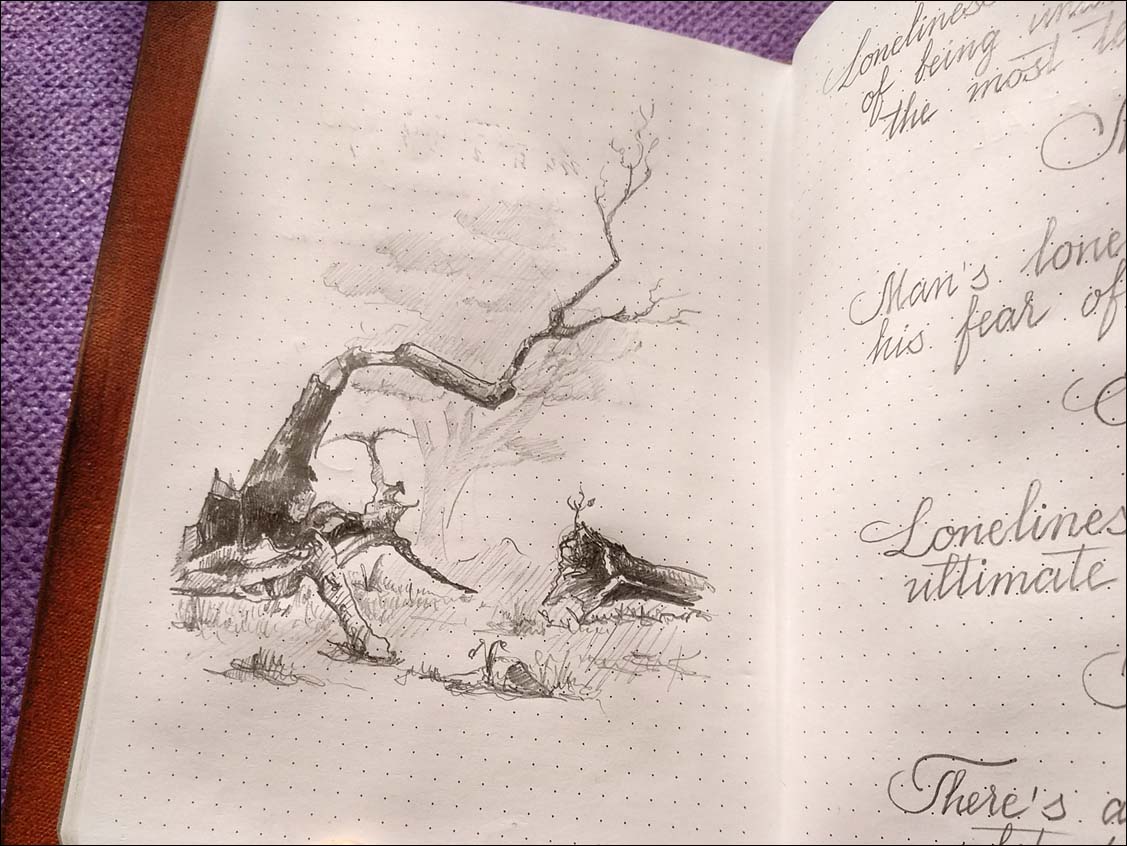 Loneliness
of being
the most
Man's lone
his fear of
Lonelines
ultimate
There's a